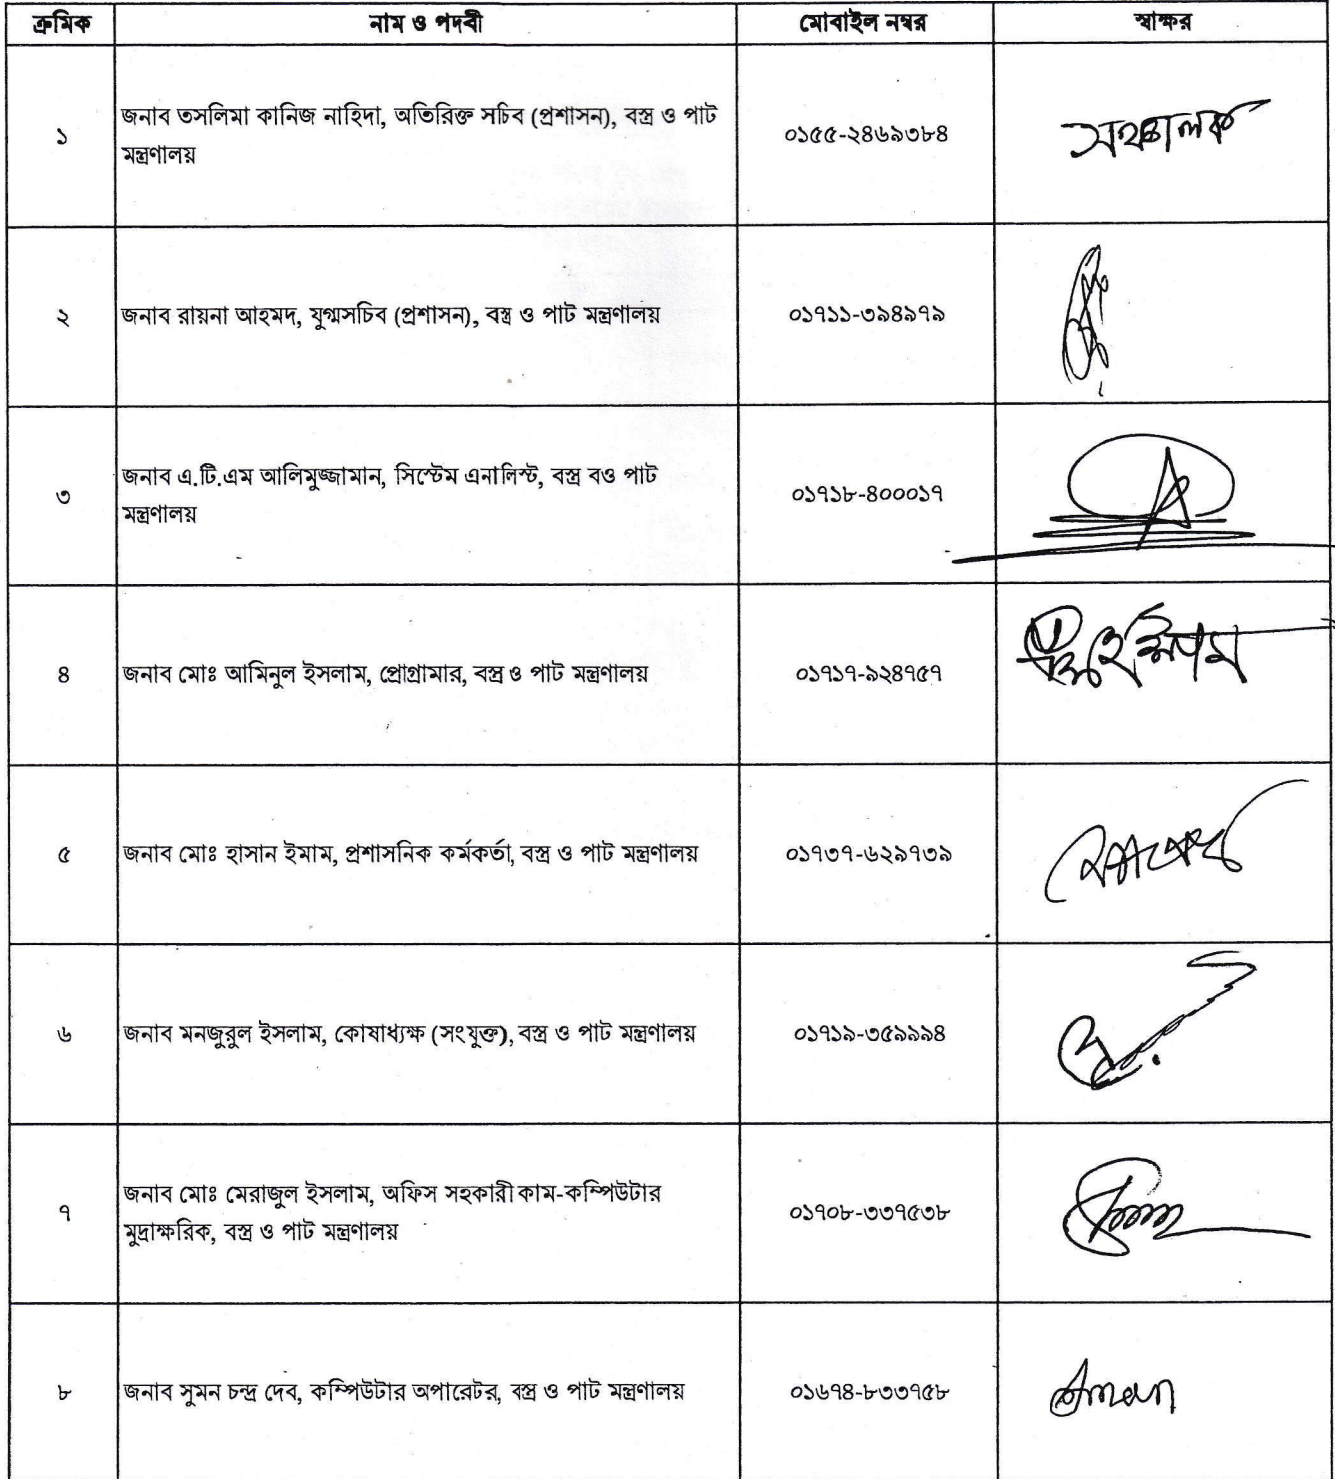 ক্রমিক নাম ও পদবী মোবাইল নম্বর স্বাক্ষর
১ জনাব তসলিমা কানিজ নাহিদা, অতিরিক্ত সচিব (প্রশাসন), বস্ত্র ও পাট ০১৫৫-২৪৬৯৩৮৪
মন্ত্রণালয়
২ জনাব রায়না আহমদ, যুগ্মসচিব (প্রশাসন), বস্ত্র ও পাট মন্ত্রণালয় ০১৭১১-৩৯৪৯৭৯
৩ জনাব এ.টি.এম আলিমুজ্জামান, সিস্টেম এনালিস্ট, বস্ত্র বও পাট ০১৭১৮-৪০০০১৭
মন্ত্রণালয়
৪ জনাব মোঃ আমিনুল ইসলাম, প্রোগ্রামার, বস্ত্র ও পাট মন্ত্রণালয় ০১৭১৭-৯২৪৭৫৭
৫ জনাব মোঃ হাসান ইমাম, প্রশাসনিক কর্মকর্তা, বস্ত্র ও পাট মন্ত্রণালয় ০১৭৩৭-৬২৯৭৩৯
৬ জনাব মনজুরুল ইসলাম, কোষাধ্যক্ষ (সংযুক্ত), বস্ত্র ও পাট মন্ত্রণালয় ০১৭১৯-৩৫৯৯৯৪
৭ জনাব মোঃ মেরাজুল ইসলাম, অফিস সহকারী কাম-কম্পিউটার ০১৭০৮-৩৩৭৫৩৮
মুদ্রাক্ষরিক, বস্ত্র ও পাট মন্ত্রণালয়
৮ জনাব সুমন চন্দ্র দেব, কম্পিউটার অপারেটর, বস্ত্র ও পাট মন্ত্রণালয় ০১৬৭৪-৮৩৩৭৫৮